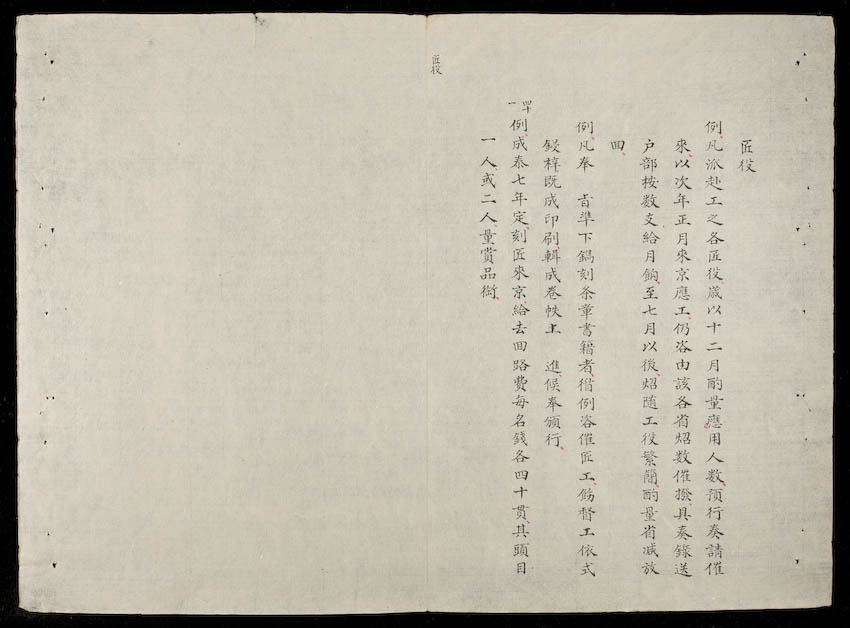 匠役
例凡派赴工之各匠役歲以十二月酌量應用人數預行奏請催
來以次年正月來京應工仍咨由該各省炤數催撥具奏錄送
户部按数支給月餉至七月以後炤随工役繁簡酌量省减放
囬
例凡奉 旨準下鐫刻条章書籍者循例咨催匠工飭督工依式
鋟梓既成印刷輯成卷帙 進候奉頒行
一例成泰七年定刻匠來京給去囬路費每名錢各四十貫其頭目
一人或二人量賞品銜
匠役